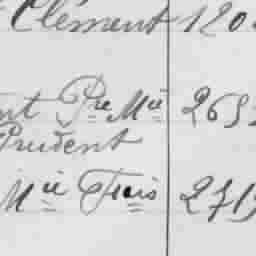 Clément 120
nt Pre Mie 265
Prudent
Mie Frois 271